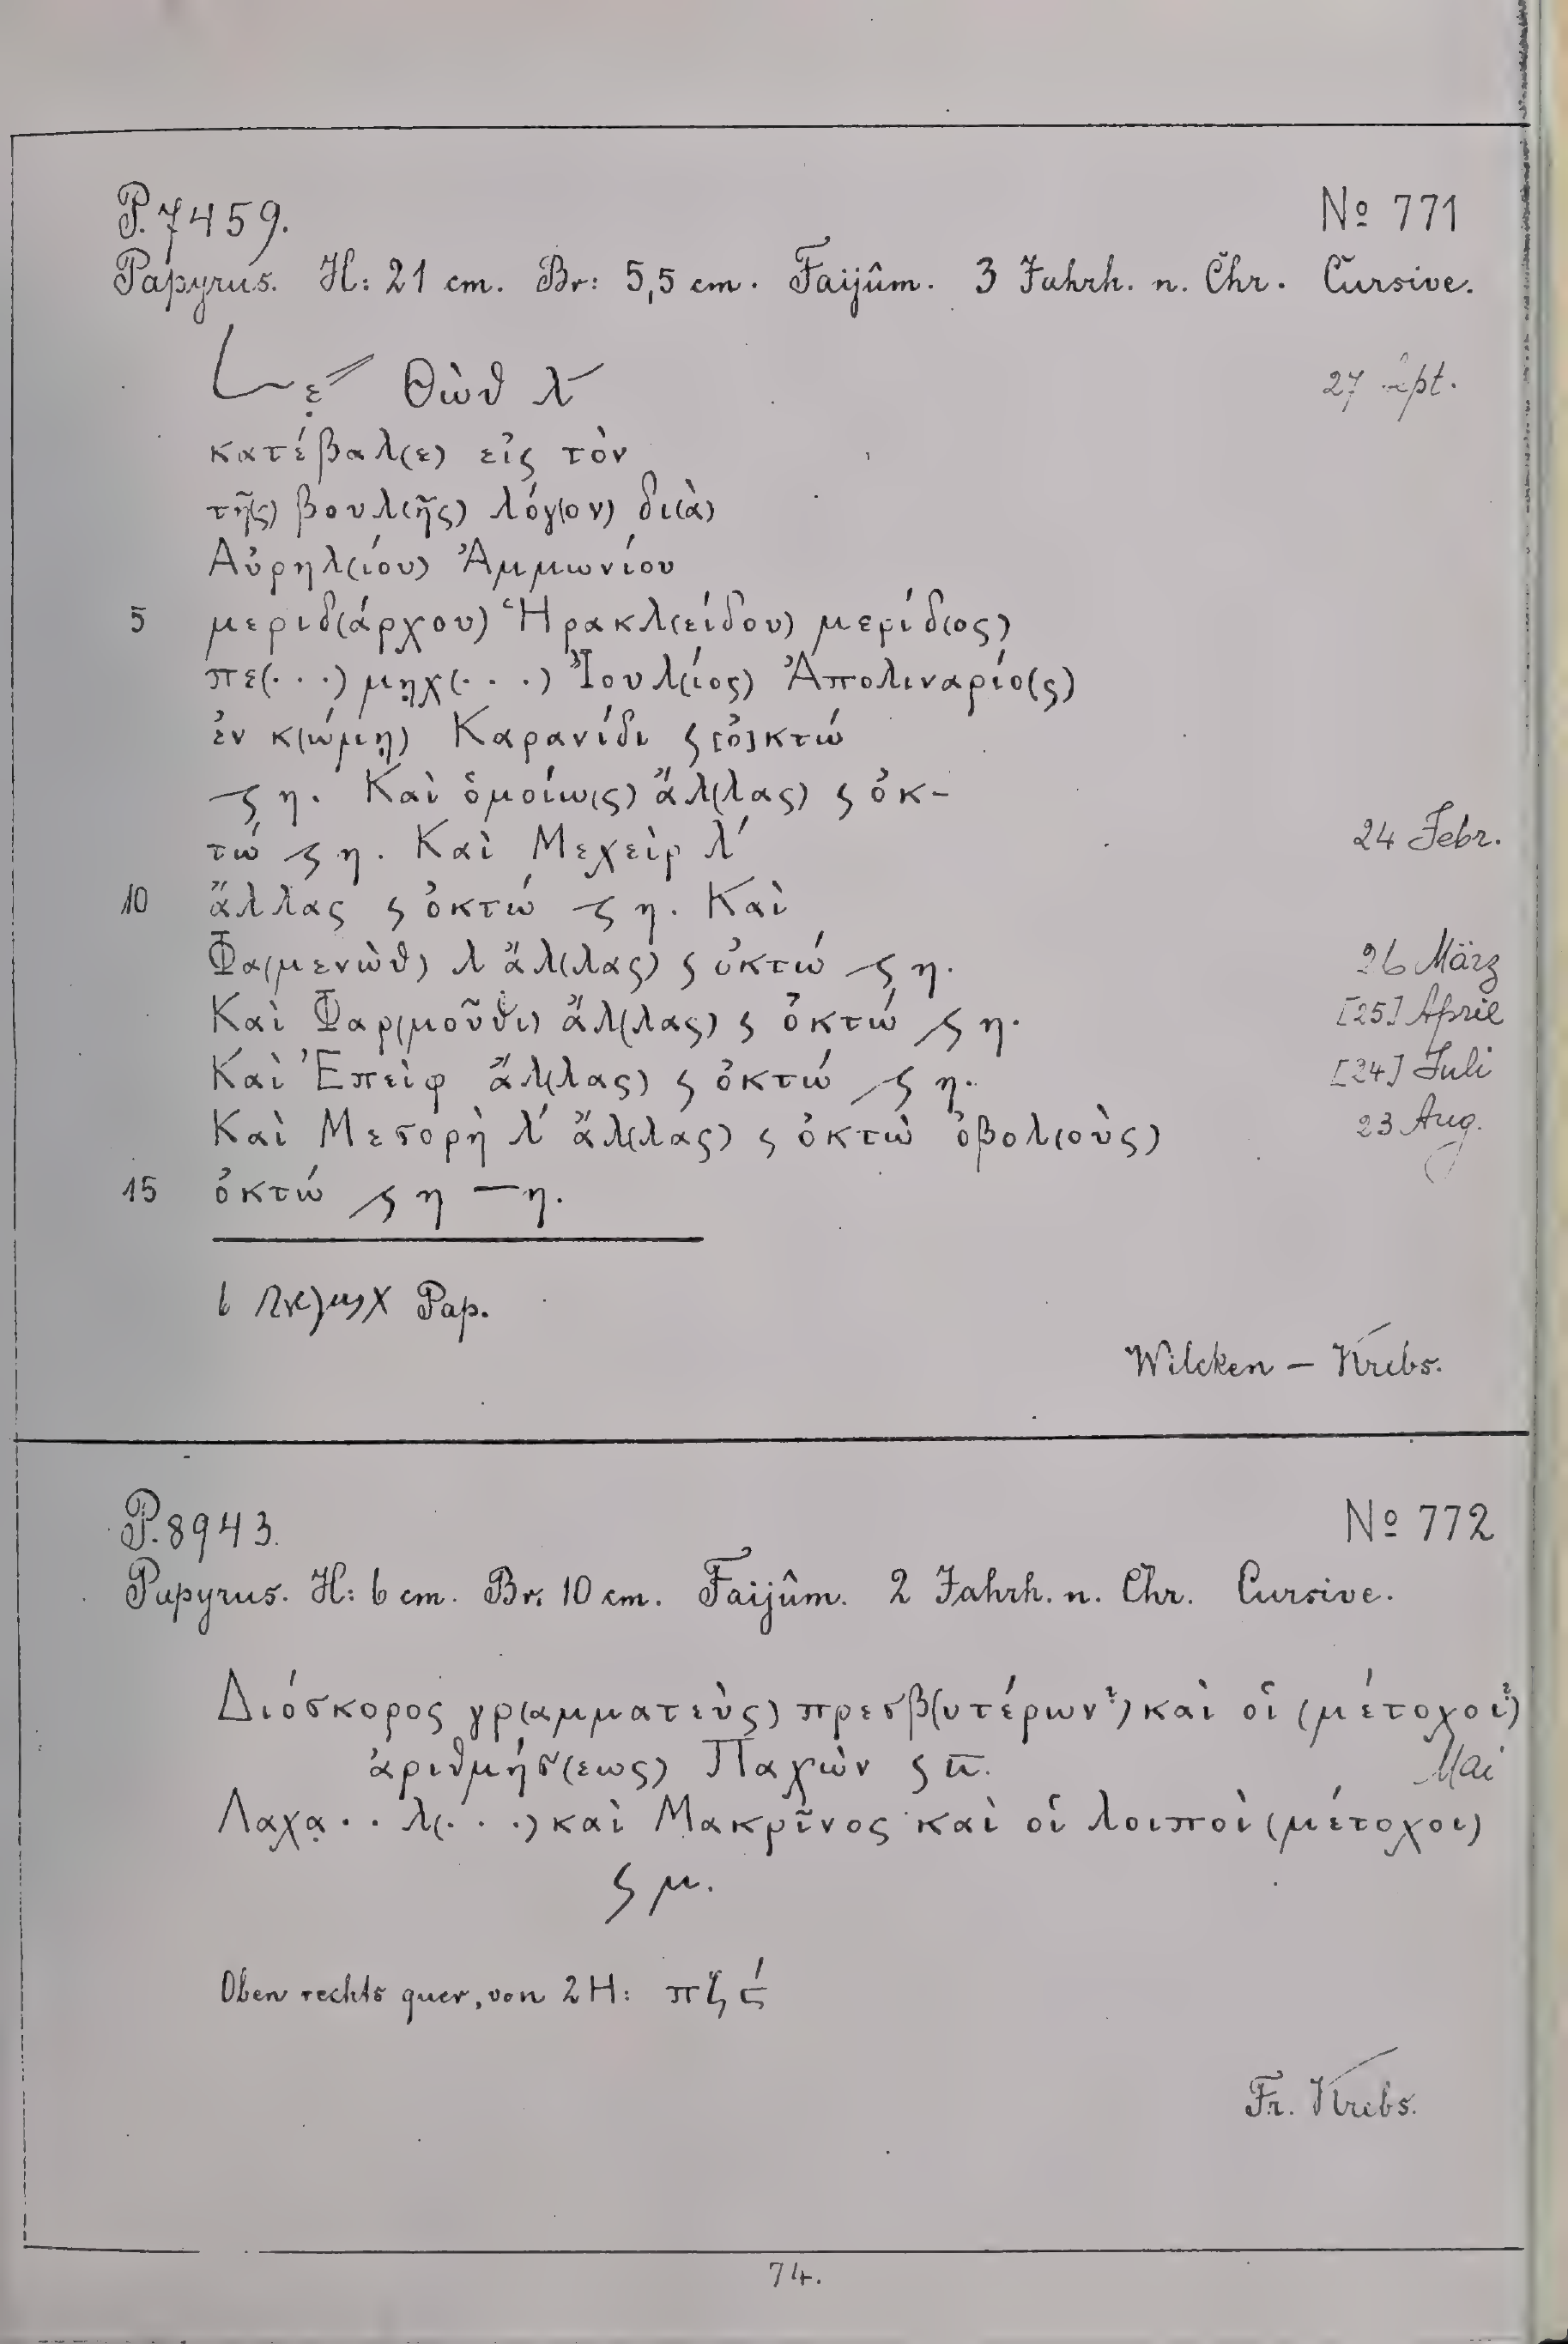 P. 7459. № 771
Papyrus. H: 21 cm. Br: 5,5 cm. Faijûm. 3 Jahrh. n. Chr. Cursive.
ε̣ Θὼθ λ 27 Sept.
κατέβαλ(ε) εἰς τὸν
τῆ(ς) βουλ(ῆς) λόγ(ον) δι(ὰ)
Αὐρηλ(ίου) Ἀμμωνίου
5 μεριδ(άρχου) Ἡρακλ(είδου) μερίδ(ος)
πε(· · ·) μη̣χ(· · ·) Ἰουλ(ίος) Ἀπολιναρίο(ς)
ἐν κ(ώμῃ) Καρανίδι ϛ [ὀ]κτώ
ϛ η. Καὶ ὁμοίω(ς) ἄλ(λας) ϛ ὀκ-
τώ ϛ η. Καὶ Μεχεὶρ λ´ 24 Febr.
10 ἄλλας ϛ ὀκτώ ϛ η. Καὶ
Φα(μενὼθ) λ ἄλ(λας) ϛ ὀκτώ ϛ η. 26 März
Καὶ Φαρ(μοῦθι) ἄλ(λας) ϛ ὀκτώ ϛ η. [25] April
Καὶ Ἐπεὶφ ἄλ(λας) ϛ ὀκτώ ϛ η. [24] Juli
Καὶ Μεσορὴ λ´ ἄλ(λας) ϛ ὀκτὼ ὀβολ(οὺς) 23 Aug.
15 ὀκτώ ϛ η — η.
6 Pap.
Wilcken – Krebs.
P. 8943. № 772
Papyrus. H: 6 cm. Br: 10 cm. Faijûm. 2 Jahrh. n. Chr. Cursive.
Διόσκορος γρ(αμματεὺς) πρεσβ(υτέρων?) καὶ οἱ (μέτοχοι?)
ἀριθμήσ(εως) Παχὼν ϛ π̅. Mai
Λαχα̣ · · λ(· · ·) καὶ Μακρῖνος καὶ οἱ λοιποὶ (μέτοχοι)
ϛ μ.
Oben rechts quer, von 2 H: πζ
Fr. Krebs.
74.